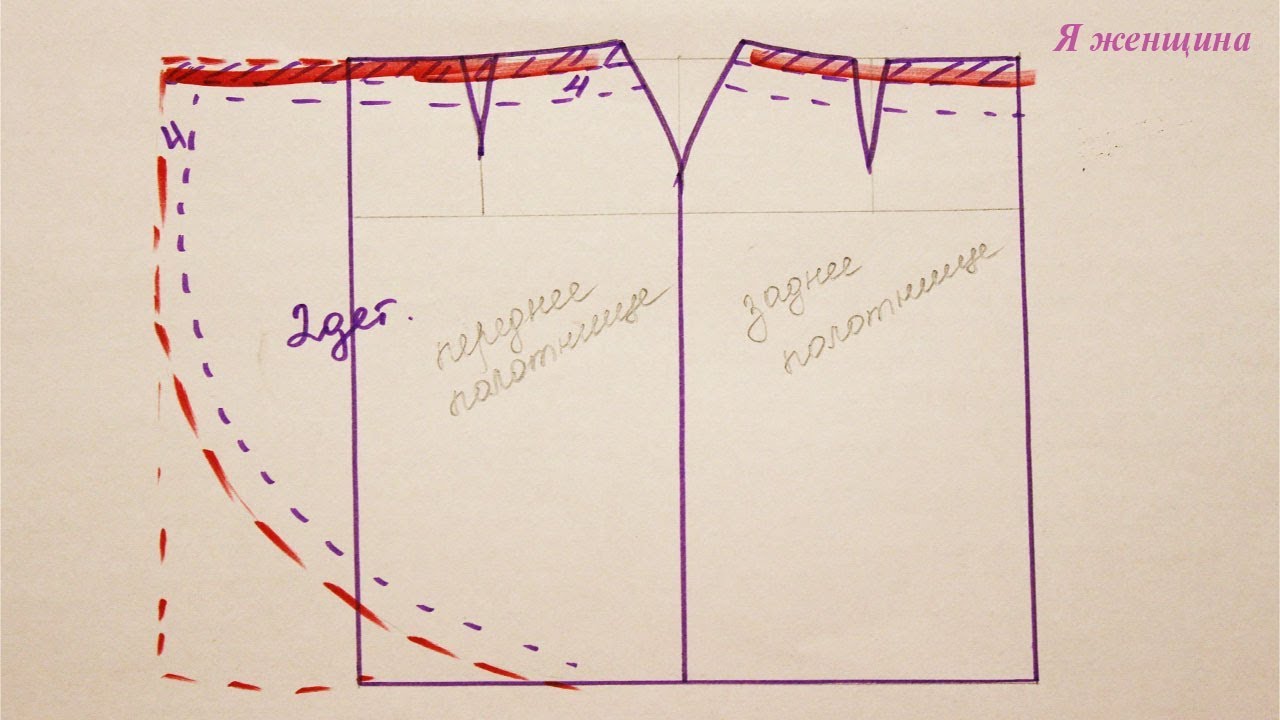 Я женщина
4
4
2 дет.
переднее
полотнище
заднее
полотнище